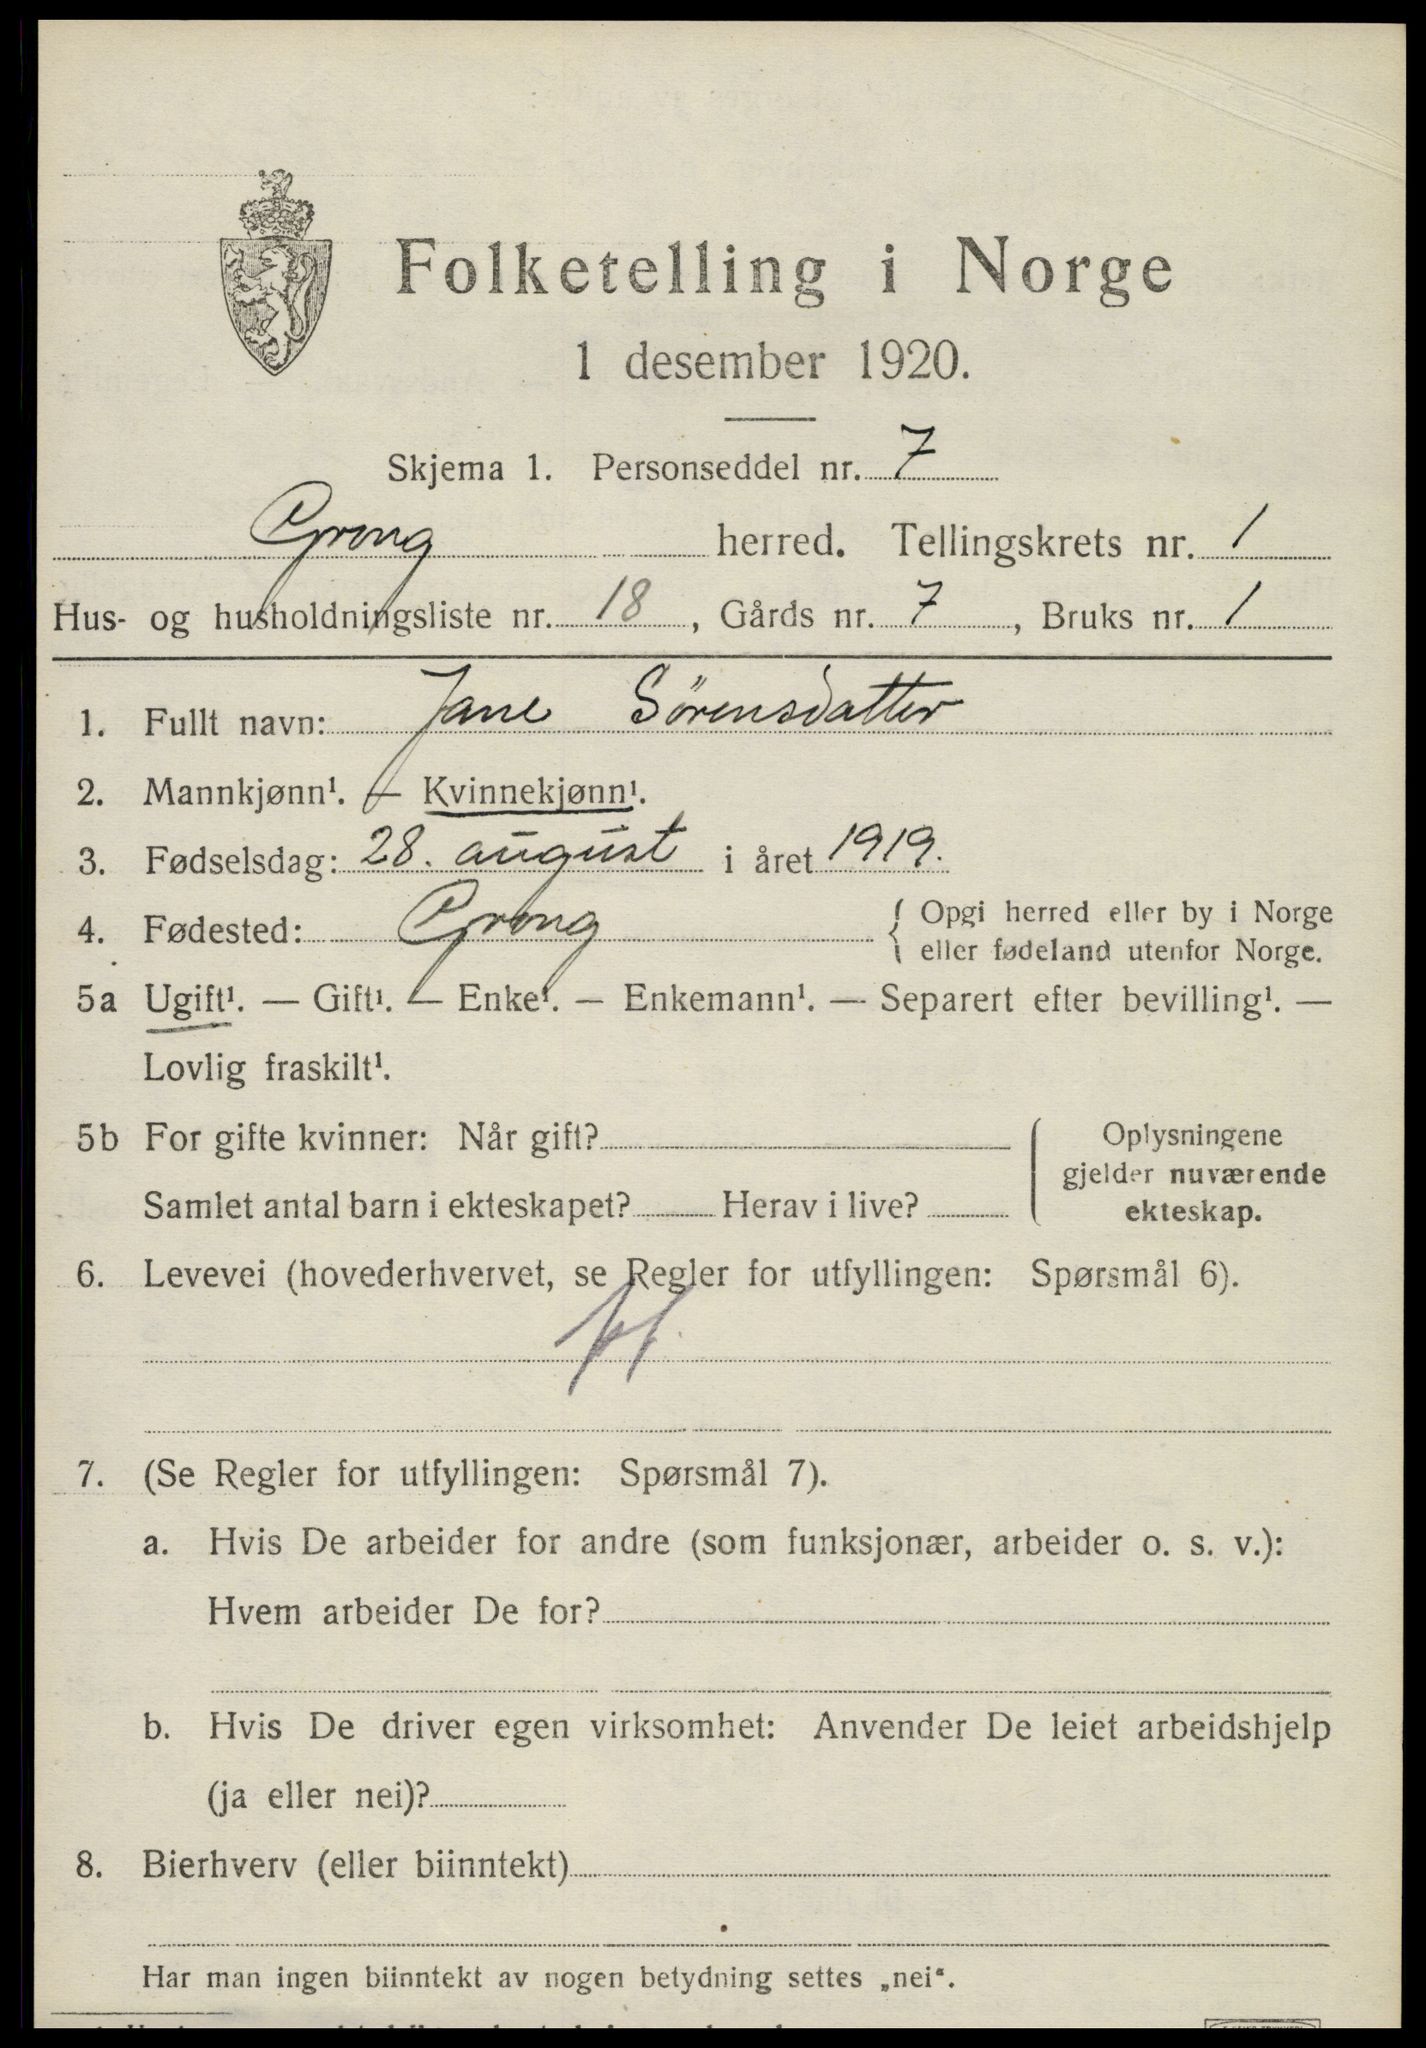 Folketelling i Norge
1 desember 1920.
Skjema 1. Personseddel nr. 7
Grong herred. Tellingskrets nr. 1
Hus- og husholdningsliste nr. 18, Gårds nr. 7, Bruks nr. 1
1. Fullt navn: Jane Sörensdatter
2. Mannkjønn¹. — Kvinnekjønn¹.
3. Fødselsdag: 28. august i året 1919.
4. Fødested: Grong { Opgi herred eller by i Norge
eller fødeland utenfor Norge.
5a Ugift¹. — Gift¹. — Enke¹. — Enkemann¹. — Separert efter bevilling¹. —
Lovlig fraskilt¹.
5b For gifte kvinner: Når gift?
Samlet antal barn i ekteskapet? Herav i live?
Oplysningene
gjelder nuværende
ekteskap.
6. Levevei (hovederhvervet, se Regler for utfyllingen: Spørsmål 6).
7. (Se Regler for utfyllingen: Spørsmål 7).
a. Hvis De arbeider for andre (som funksjonær, arbeider o. s. v.):
Hvem arbeider De for?
b. Hvis De driver egen virksomhet: Anvender De leiet arbeidshjelp
(ja eller nei)?
8. Bierhverv (eller biinntekt)
Har man ingen biinntekt av nogen betydning settes „nei“.